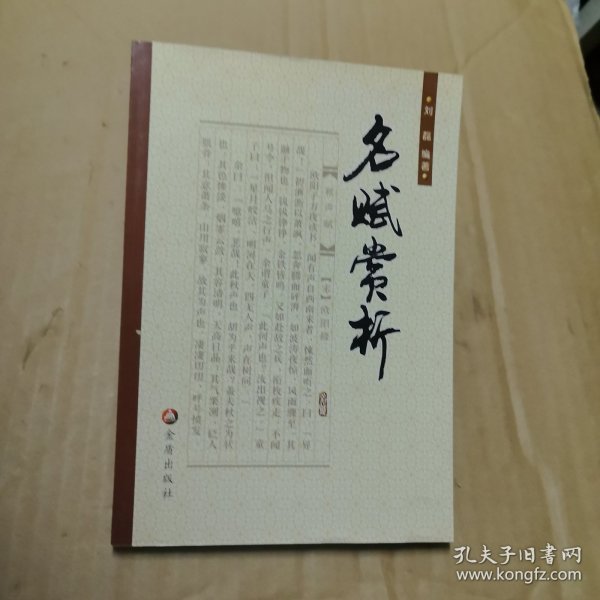 名赋赏析
刘磊 编著
【秋声赋】 【宋】欧阳修
欧阳子方夜读书，闻有声自西南来者，悚然而听之，曰：“异
哉！”初淅沥以萧飒，忽奔腾而砰湃，如波涛夜惊，风雨骤至。其
触于物也，鏦鏦铮铮，金铁皆鸣；又如赴敌之兵，衔枚疾走，不闻
号令，但闻人马之行声。余谓童子：“此何声也？汝出视之。”童
子曰：“星月皎洁，明河在天，四无人声，声在树间。”
余曰：“噫嘻，悲哉！此秋声也，胡为乎来哉？盖夫秋之为状
也：其色惨淡，烟霏云敛；其容清明，天高日晶；其气栗冽，砭人
肌骨；其意萧条，山川寂寥。故其为声也，凄凄切切，呼号愤发
金盾出版社
孔夫子旧书网
www.kongfz.com